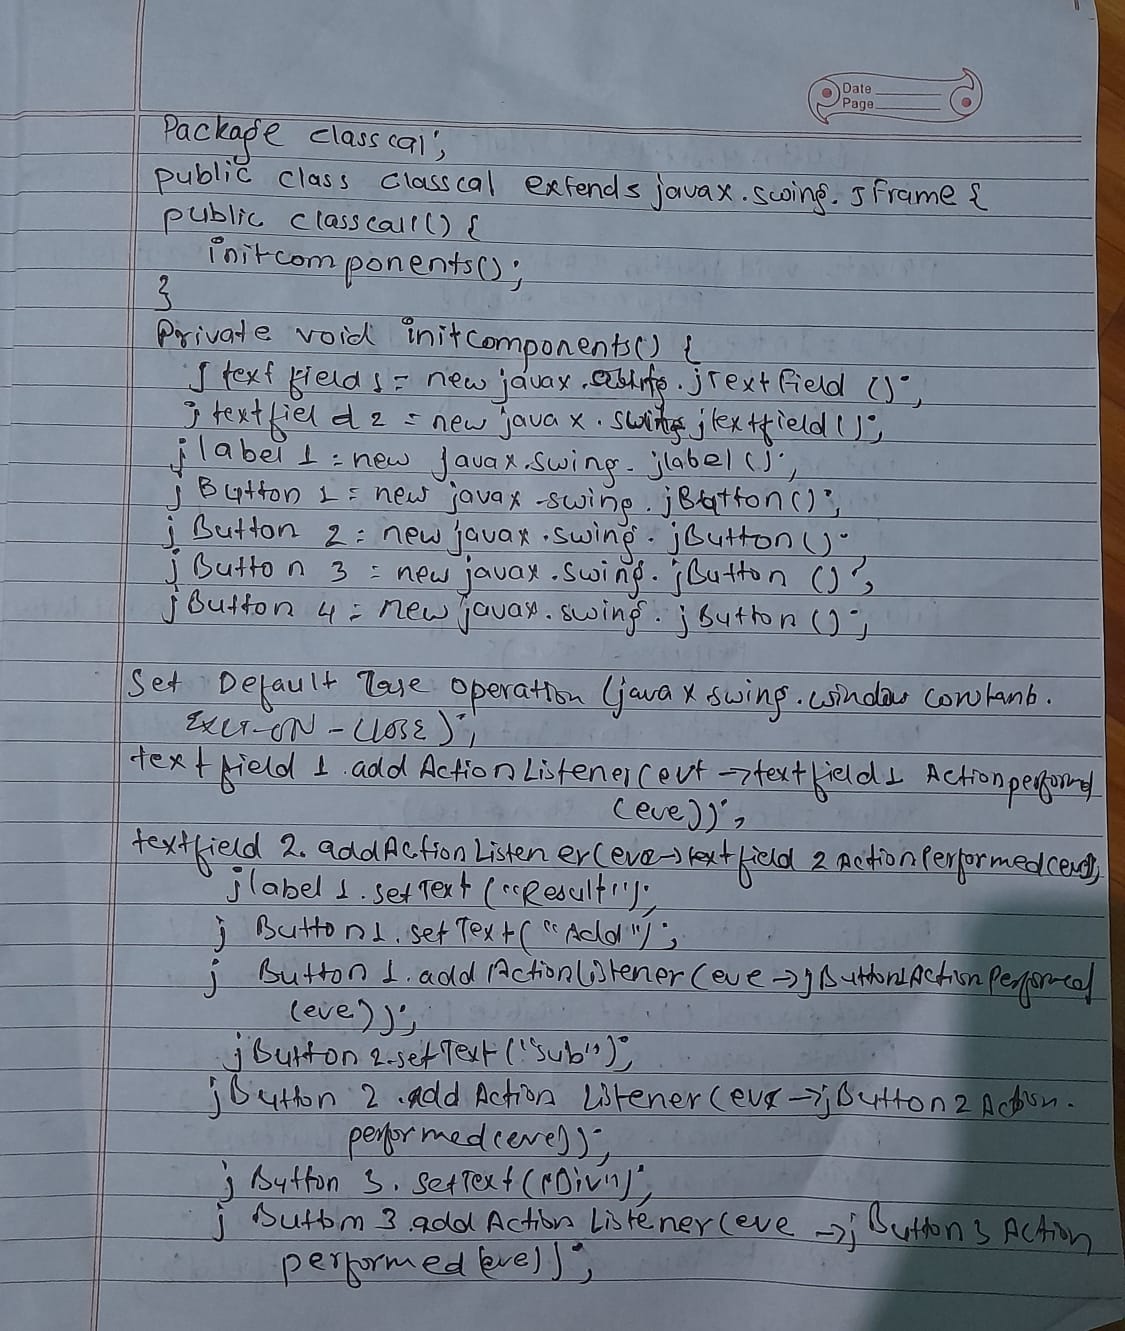 Date
Page
Package classcal;
public class classcal extends javax.swing.JFrame {
public classcall() {
initcomponents();
}
Private void initcomponents() {
J textfield 1 = new javax. . jTextfield ();
j textfield 2 = new javax.swing jtextfield();
jlabel 1 = new javax.swing. jlabel();
j Button 1 = new javax.swing. jButton();
j Button 2 = new javax.swing. jButton();
j Button 3 = new javax.swing. jButton ();
jButton 4 = new javax.swing. jButton ();
Set Default operation (javax swing.window
EXIT-ON-CLOSE);
textfield 1.add Action Listener(evt ->textfield 1 Actionperformed
(eve));
textfield 2. addAction Listener(eve->textfield 2 ActionPerformed(eve));
jlabel 1.setText ("Result");
j Button 1. setText("Add");
j Button 1. add ActionListener(eve ->jButton1ActionPerformed
(eve));
jButton 2.setText("Sub");
jButton 2 .add Action Listener(eve ->jButton2 Action.
performed(eve));
j Button 3. SetText("Div");
j Button 3 .add Action Listener(eve ->jButton 3 Action
performed(eve));